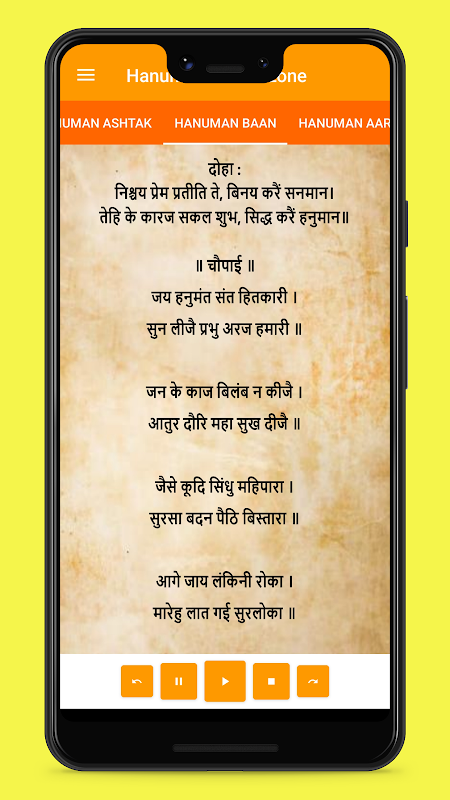 Hanu one
HUMAN ASHTAK HANUMAN BAAN HANUMAN AAR
दोहा :
निश्चय प्रेम प्रतीति ते, बिनय करैं सनमान।
तेहि के कारज सकल शुभ, सिद्ध करैं हनुमान॥
॥ चौपाई ॥
जय हनुमंत संत हितकारी ।
सुन लीजै प्रभु अरज हमारी ॥
जन के काज बिलंब न कीजै ।
आतुर दौरि महा सुख दीजै ॥
जैसे कूदि सिंधु महिपारा ।
सुरसा बदन पैठि बिस्तारा ॥
आगे जाय लंकिनी रोका ।
मारेहु लात गई सुरलोका ॥